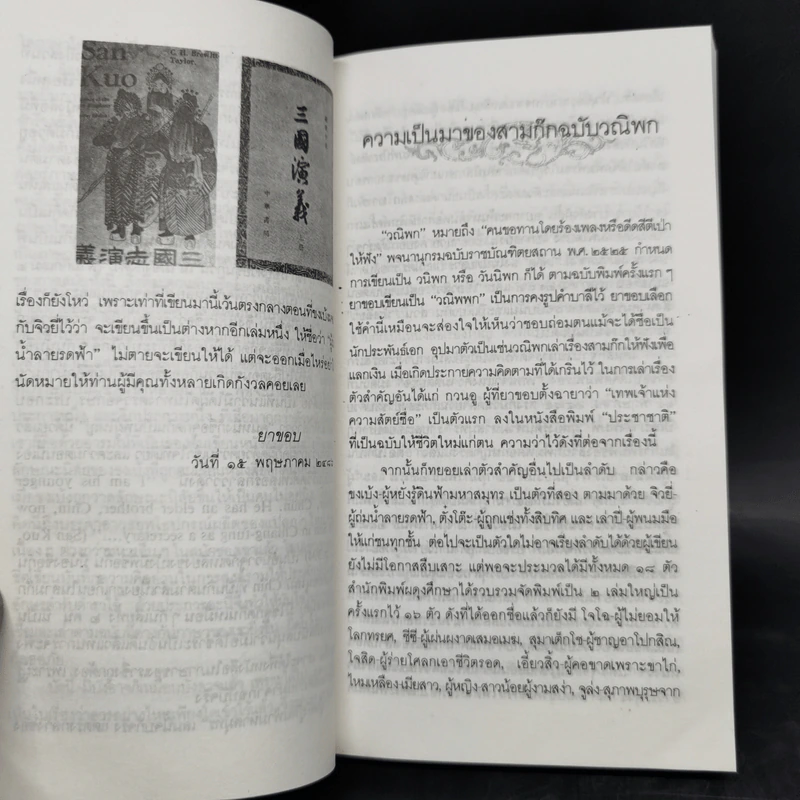 San
Kuo
C. H. Brewitt
Taylor
三國演義
中華書局
義演志國三
เรื่องก็ยังโหว่ เพราะเท่าที่เขียนมานี้เว้นตรงกลางตอนที่ขงเบ้ง
กับจิวยี่ไว้ว่า จะเขียนขึ้นเป็นต่างหากอีกเล่มหนึ่ง ให้ชื่อว่า
น้ำลายรดฟ้า” ไม่ตายจะเขียนให้ได้ แต่จะออกเมื่อไหร่
นัดหมายให้ท่านผู้มีคุณทั้งหลายเกิดกังวลคอยเลย
ยาขอบ
วันที่ ๑๕ พฤษภาคม ๒๔๘
ความเป็นมาของสามก๊กฉบับวณิพก
“วณิพก” หมายถึง “คนขอทานโดยร้องเพลงหรือดีดสีตีเป่า
ให้ฟัง” พจนานุกรมฉบับราชบัณฑิตยสถาน พ.ศ. ๒๕๒๕ กำหนด
การเขียนเป็น วนิพก หรือ วันนิพก ก็ได้ ตามฉบับพิมพ์ครั้งแรก ๆ
ยาขอบเขียนเป็น “วณิพพก” เป็นการคงรูปคำบาลีไว้ ยาขอบเลือก
ใช้คำนี้เหมือนจะส่องใจให้เห็นว่าชอบถ่อมตนแม้จะได้ชื่อเป็น
นักประพันธ์เอก อุปมาตัวเป็นเช่นวณิพกเล่าเรื่องสามก๊กให้ฟังเพื่อ
แลกเงิน เมื่อเกิดประกายความคิดตามที่ได้เกริ่นไว้ ในการเล่าเรื่อง
ตัวสำคัญอันได้แก่ กวนอู ผู้ที่ยาขอบตั้งฉายาว่า “เทพเจ้าแห่ง
ความสัตย์ซื่อ” เป็นตัวแรก ลงในหนังสือพิมพ์ “ประชาชาติ”
ที่เป็นฉบับให้ชีวิตใหม่แก่ตน ความว่าไว้ดังที่ต่อจากเรื่องนี้
จากนั้นก็ทยอยเล่าตัวสำคัญอื่นไปเป็นลำดับ กล่าวคือ
ขงเบ้ง-ผู้หยั่งรู้ดินฟ้ามหาสมุทร เป็นตัวที่สอง ตามมาด้วย จิวยี่-
ผู้ถ่มน้ำลายรดฟ้า, ตั๋งโต๊ะ-ผู้ถูกแช่งทั้งสิบทิศ และ เล่าปี่-ผู้พนมมือ
ให้แก่ชนทุกชั้น ต่อไปจะเป็นตัวใดไม่อาจเรียงลำดับได้ด้วยผู้เขียน
ยังไม่มีโอกาสสืบเสาะ แต่พอจะประมวลได้มีทั้งหมด ๑๘ ตัว
สำนักพิมพ์ผดุงศึกษาได้รวบรวมจัดพิมพ์เป็น ๒ เล่มใหญ่เป็น
ครั้งแรกไว้ ๑๖ ตัว ดังที่ได้ออกชื่อแล้วก็ยังมี โจโฉ-ผู้ไม่ยอมให้
โลกทรยศ, ชีซี-ผู้เผ่นผงาดเสมอเมฆ, สุมาเต็กโช-ผู้ชาญอาโปกสิณ,
โจสิด-ผู้ร่ายโคลกเอาชีวิตรอด, เอี้ยวสิ้ว-ผู้คอขาดเพราะขาไก่,
ไหมเหลือง-เมียสาว, ผู้หญิง-สาวน้อยผู้งามสง่า, จูล่ง-สุภาพบุรุษจาก